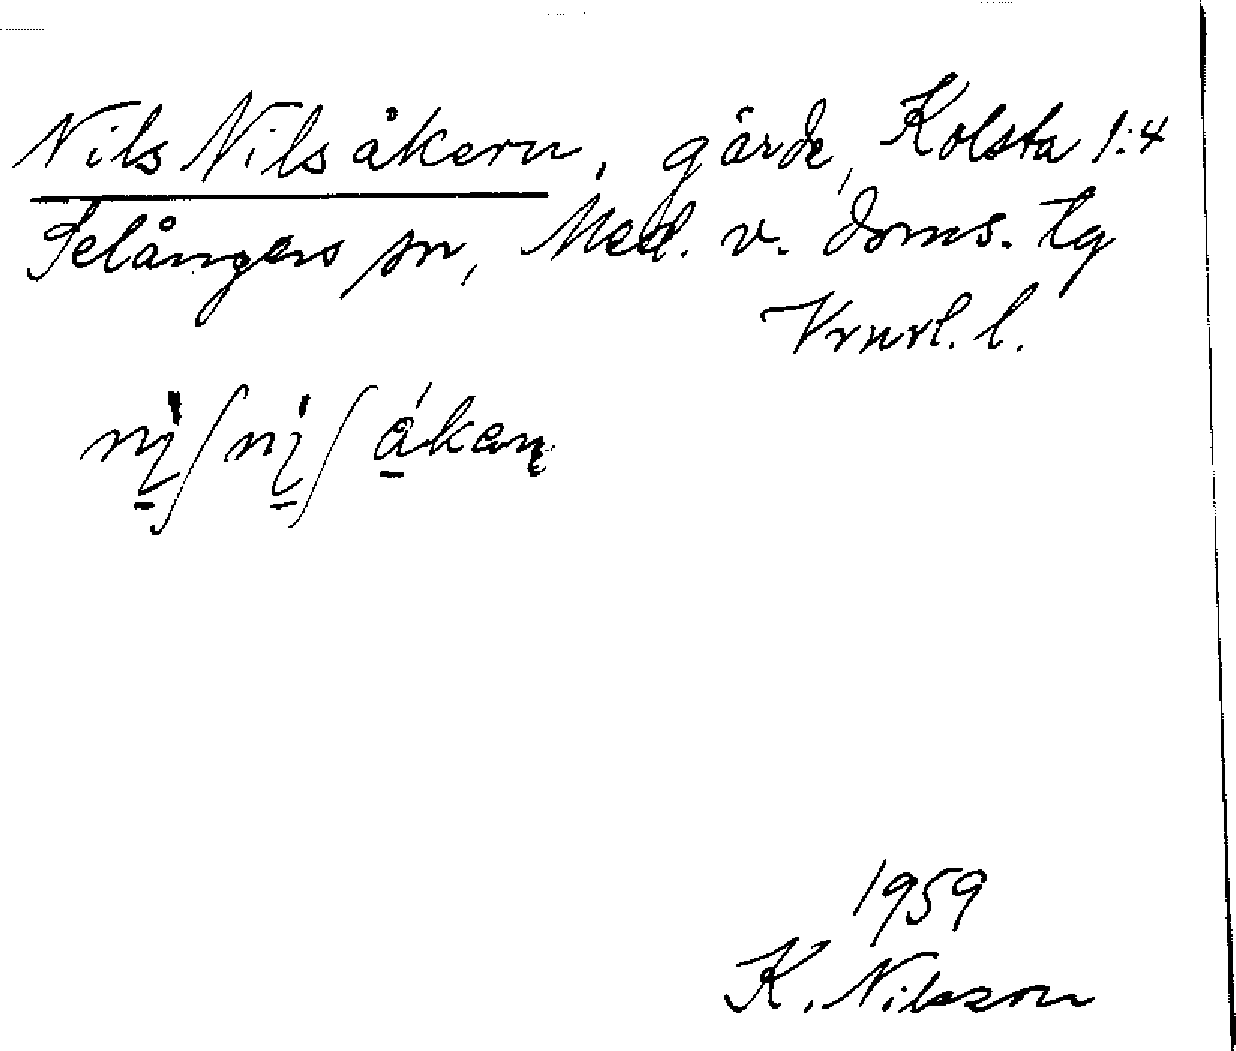 Nils Nilsåkern, gärde, Kolsta 1:4
Selångers sn, Med. v. doms. tg
Vrnrl. l.
åkan
1959
K. Nilsson